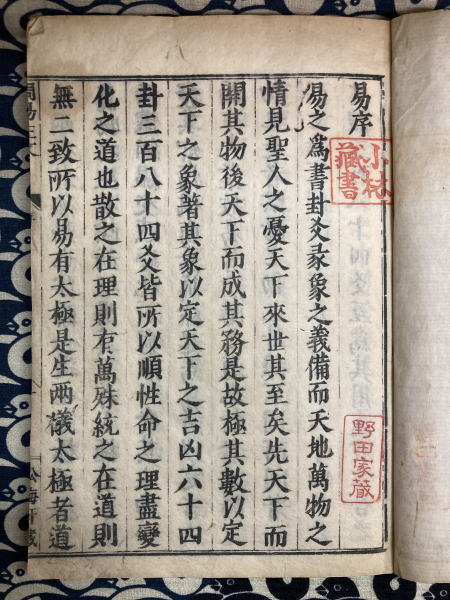 易序
小林
藏書
易之爲書卦爻彖象之義備而天地萬物之
情見聖人之憂天下來世其至矣先天下而
開其物後天下而成其務是故極其數以定
天下之象著其象以定天下之吉凶六十四
卦三百八十四爻皆所以順性命之理盡變
化之道也散之在理則有萬殊統之在道則
無二致所以易有太極是生兩儀太極者道
野田家蔵